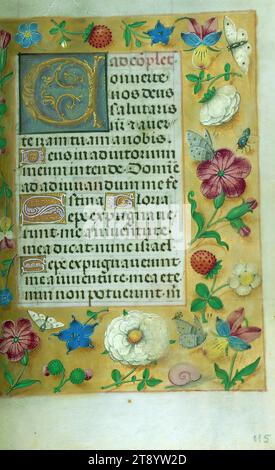 ad cōplet
Conuerte
nos deus
salutaris
nr̄ et auer
te iram tuam a nobis.
Deus in adiutorium
meum intende Domine
ad adiuuandum me fe
stina Gloria
Sepe expugnaue
runt me a iuuentute
mea dicat nunc israel
Sepe expugnauerunt
me a iuuentute mea ete
nim non potuerunt m
115